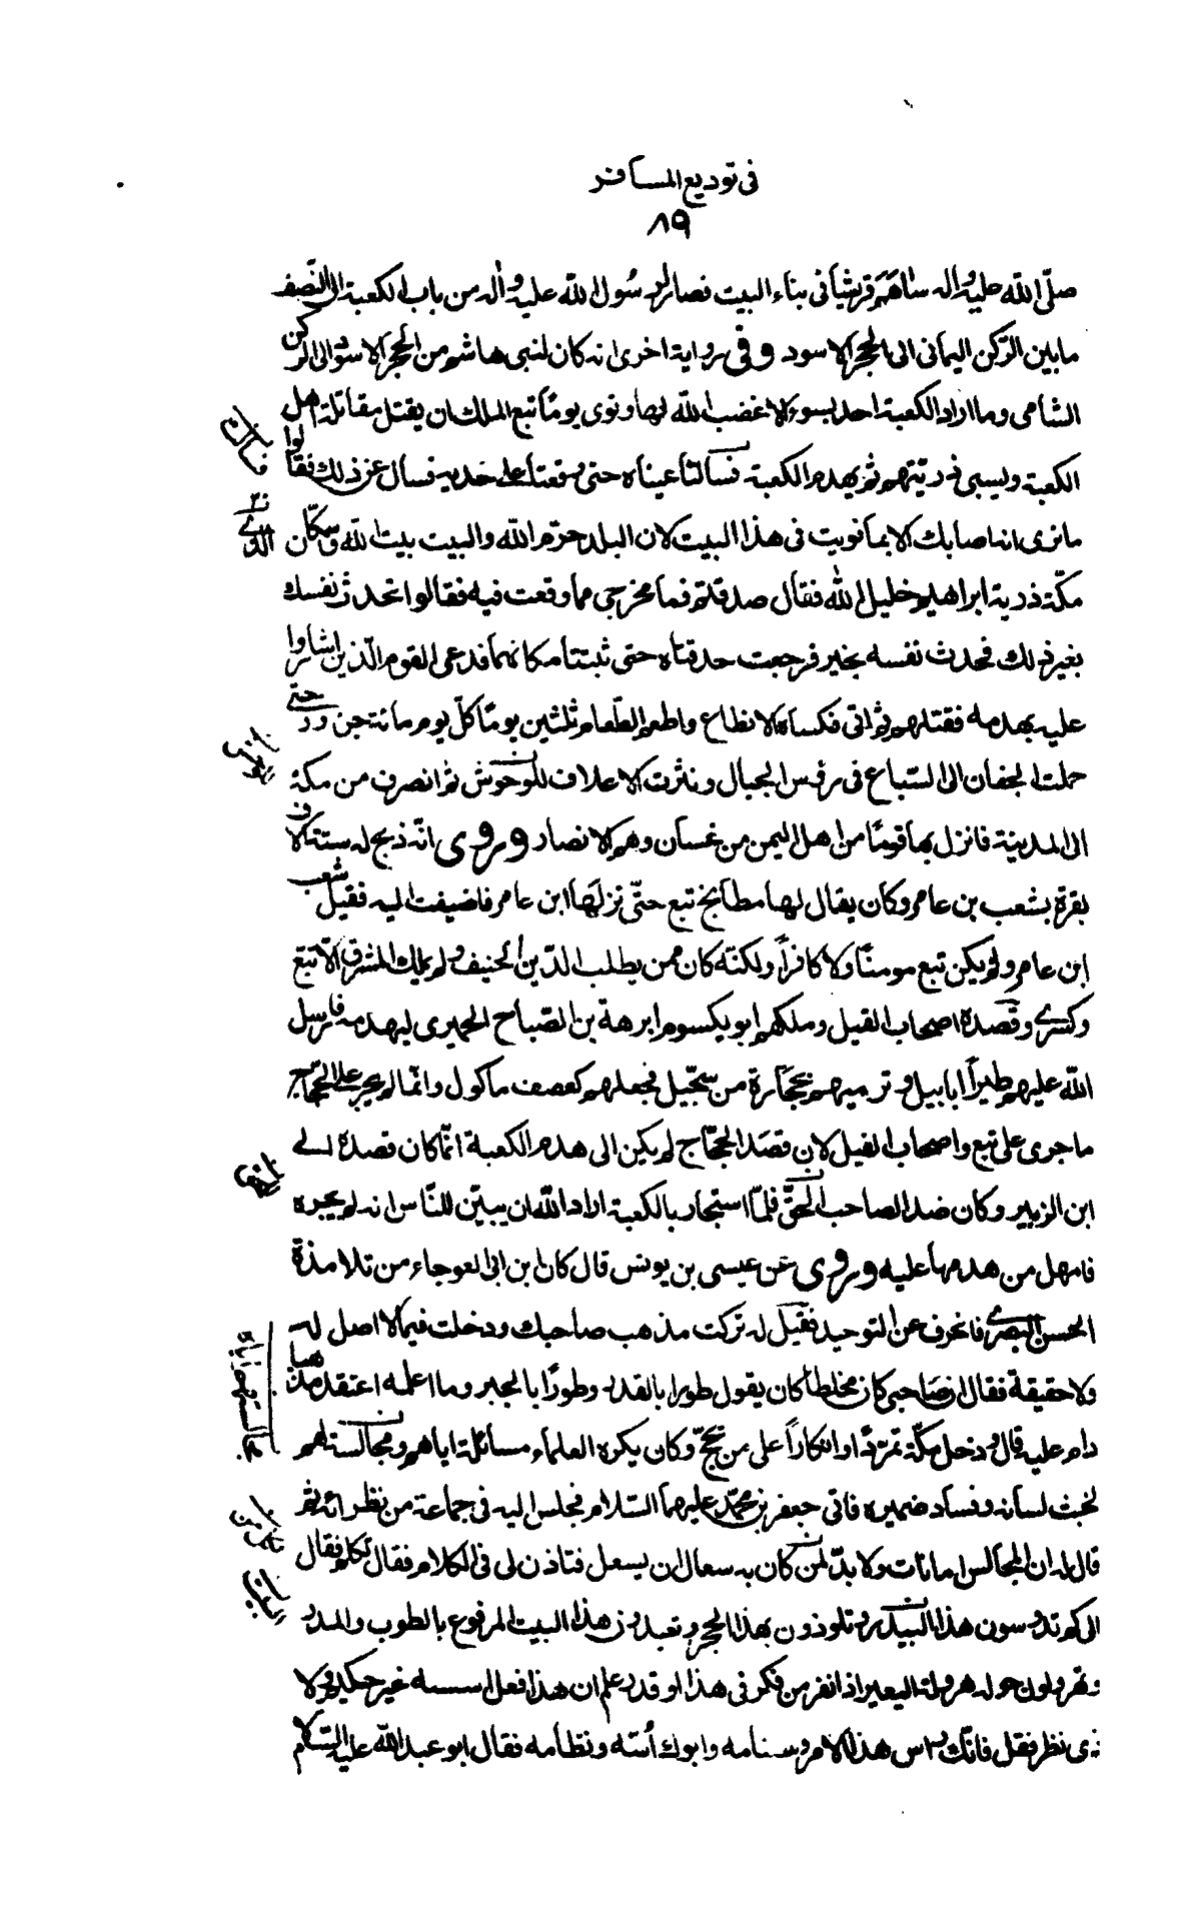 فى توديع المسافر
٨٩
صلّى اللّه عليه واله ساهَمَ قريشاً فى بناء البيت فصار لرسُول اللّه عليه واله من باب الكعبة الى النّصف
ما بين الرّكن اليمانى الى الحجر الاسود وفى رواية اخرى انه كان لبنى هاشم من الحجر الاسود الى الركن
الشامى وما اراد الكعبة احد بسوء الا غضب اللّه لها ونوى يوماً تبع الملك ان يقتل مقاتلة اهل
الكعبة ويسبى ذريّتهم ثم يهدم الكعبة فسالتا عيناه حتى وقعتا على خديه فسأل عن ذلك فقالوا
ما نرى انما اصابك الا بما نويت فى هذا البيت لان البلد حرم اللّه والبيت بيت اللّه وسكّان
مكّة ذرية ابراهيم خليل اللّه فقال صدقتم فما مخرجى مما وقعت فيه فقالوا تحدث نفسك
بغير ذلك فحدث نفسه بخير فرجعت حدقتاه حتى ثبتتا مكانهما فدعى القوم الّذين اشاروا
عليه بهدمه فقتلهم ثم اتى فكساه الانطاع واطعم الطّعام ثلثين يومًا كلّ يوم مائة جزور حتّى
حملت الجفان الى السّباع فى رؤس الجبال ونثرت الاعلاف للوحوش ثم انصرف من مكة
الى المدينة فانزل بها قومًا من اهل اليمن من غسان وهم الانصار وروى انّه ذبح له ستة الاف
بقرة بشعب بن عامر وكان يقال لها مطابخ تبع حتّى نزلَها ابن عامر فاضيفت اليه فقيل شعب
ابن عامر ولم يكن تبع مومنًا ولا كافراً ولكنّه كان ممن يطلب الدّين الحنيف ولم يملك المشرق الّا تبع
وكسرى وقصده اصحاب الفيل وملكهم ابو يكسوم ابرهة بن الصّباح الحميرى ليهدمه فارسل
اللّه عليهم طيراً ابابيل ترميهم بحجَارة من سجّيل فجعلهم كعصف ماكول وانّما لم يجر على الحجّاج
ما جرى على تبع واصحاب الفيل لان قصَد الحجّاج لم يكن الى هدم الكعبة انّما كان قصده الى
ابن الزبير وكان ضد الصاحب الحقّ فلمّا استجار بالكعبة اراد اللّه ان يبيّن للنّاس انه لم يجره
فامهل من هدمها عليه وروى عن عيسى بن يونس قال كان ابن ابى العوجاء من تلامذة
الحسن البصرى فانحرف عن التوحيد فقيل له تركت مذهب صاحبك ودخلت فيما لا اصل له
ولا حقيقة فقال ان صَاحبى كان مخلطا كان يقول طورا بالقدر وطورًا بالجبر وما اعلمه اعتقد مذهبا
دام عليه قال ودخل مكّة تمرّداً وانكاراً على من يحجّ وكان يكره العلماء مسائلته اياهم ومجالسته لهم
لخبث لسانه وفساد ضميره فاتى جعفر بن محمّد عليهما السّلام فجلس اليه فى جماعة من نظرائه ثم
قال له ان المجالس امانات ولا بدّ لمن كان به سعال ان يسعل فتاذن لى فى الكلام فقال تكلم فقال
الى كم تدوسون هذا البيدر وتلوذون بهذا الحجر وتعبدون هذا البيت المرفوع بالطوب والمدر
وتهرولون حوله هرولة البعير اذا نفر من فكر فى هذا او قدر علم ان هذا فعل اسسه غير حكيم ولا
ذى نظر فقل فانّك راس هذا الامر وسنامه وابوك اُسّه ونظامه فقال ابو عبد اللّه عليه السّلام